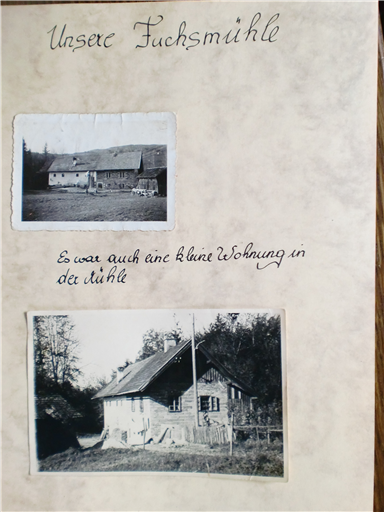 Unsere Fuchsmühle
Es war auch eine kleine Wohnung in
der Mühle